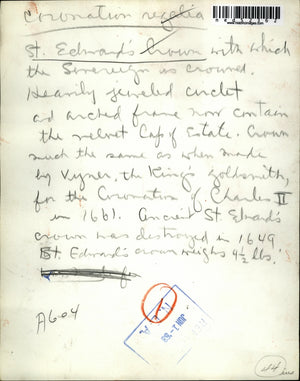 Coronation regalia
St. Edward's Crown with which
the Sovereign is crowned.
Heavily jeweled circlet
ad arched frame now contain
the velvet Cap of Estate. Crown
much the same as when made
by Vyner, the King's goldsmith,
for the Coronation of Charles II
in 1661. Ancient St Edward's
crown was destroyed in 1649
St. Edward's crown weighs 4½ lbs.
A604
N.E.A.
JUN 2-'53
44